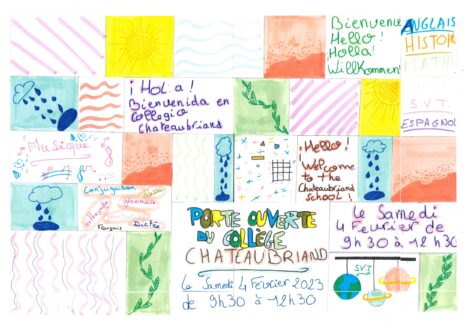 Bienvenue
Hello!
Holla!
Willkommen!
ANGLAIS
HISTOIRE
¡Hola!
Bienvenida en
Collegio
Chateaubriand
S.V.T.
ESPAGNOL
Musique
Hello!
Welcome
to the
Chateaubriand
School!
Conjugaison
grammaire
Français
Dictée
PORTE OUVERTE
DU COLLÈGE
CHATEAUBRIAND
Le Samedi 4 Février 2023
de 9h30 à 12h30
Le Samedi
4 Février de
9h30 à 12h30
SVT